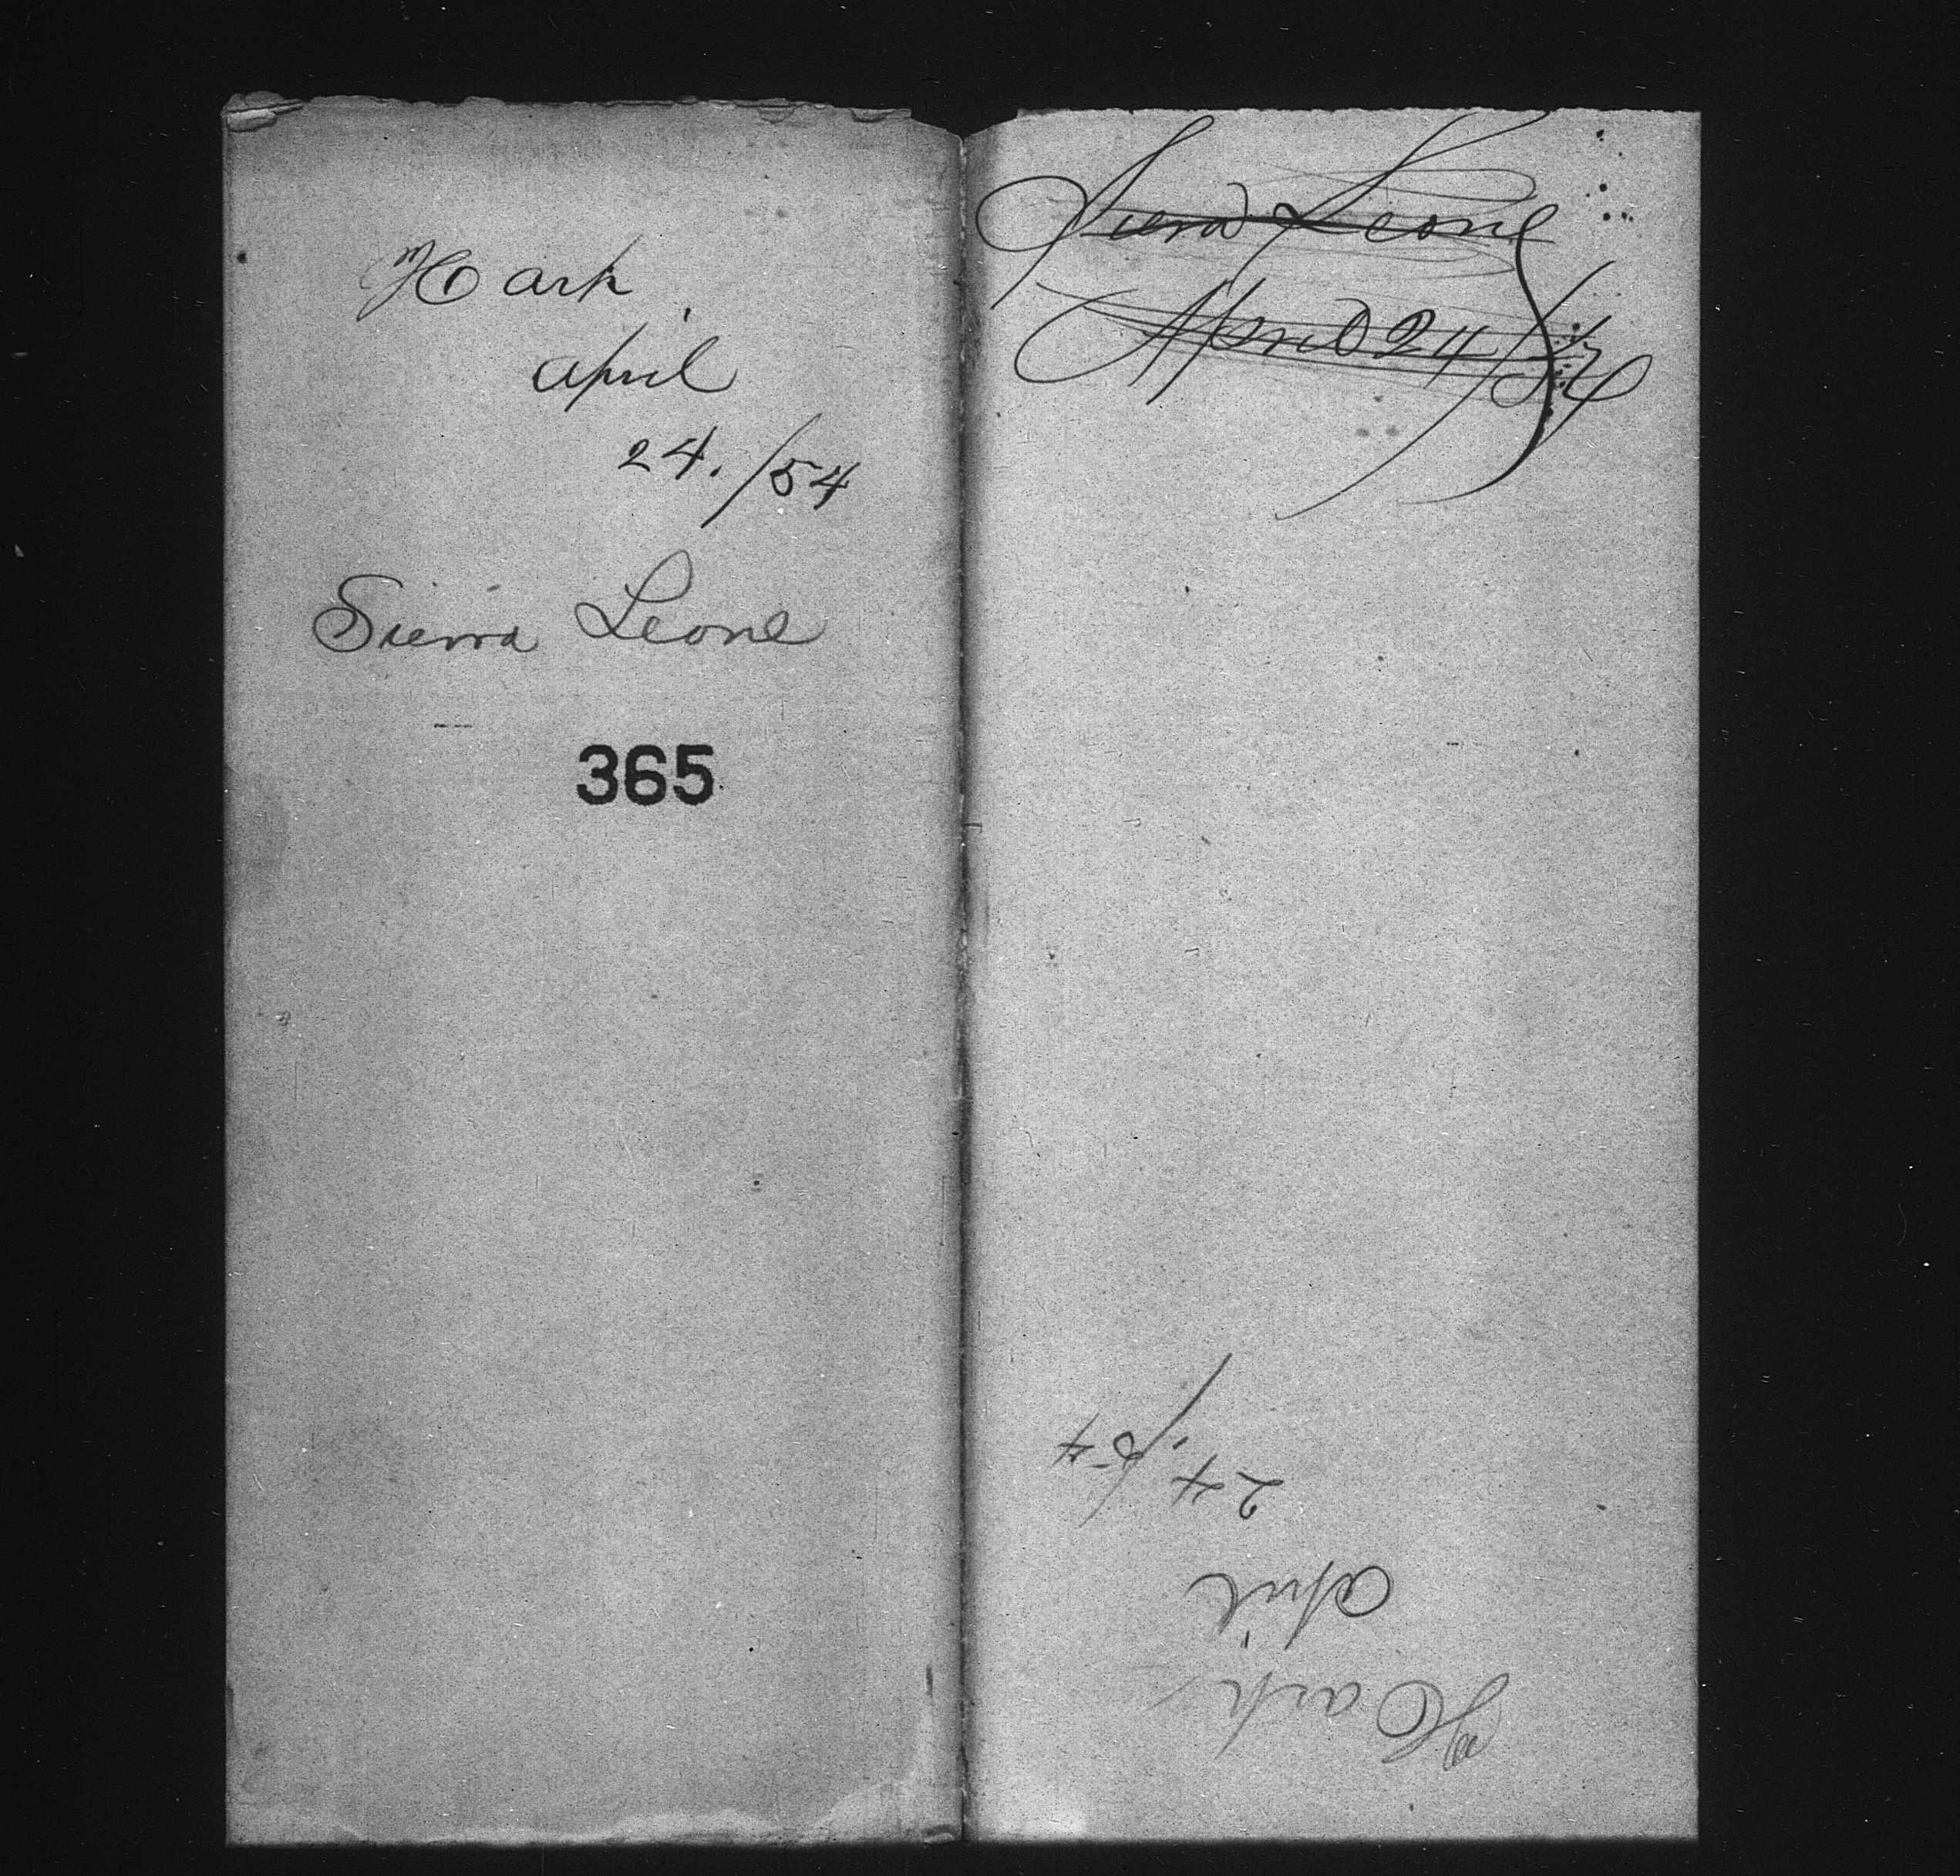 Hark
April
24./54
Sierra Leone
365
Sierra Leone
April 24/54
Hark
April
24./54